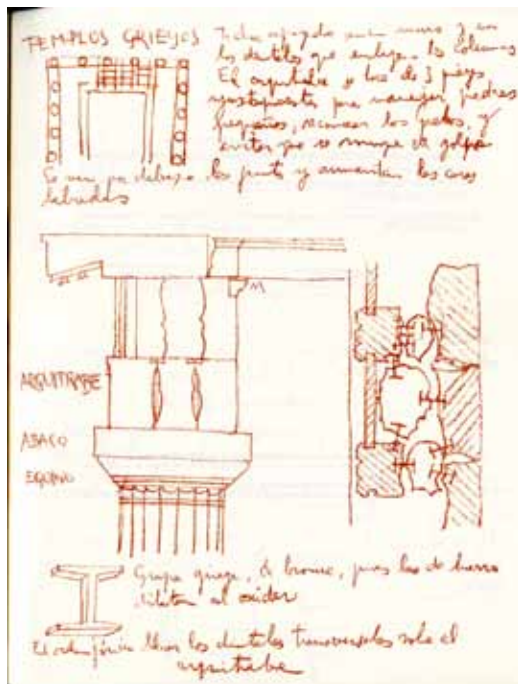 TEMPLOS GRIEGOS
Todo apoyado en un muro y con
los dinteles que enlazan las columnas
El arquitrabe se hace de 3 piezas
yuxtapuestas para manejar piedras
pequeñas, reconocer los pelos, y
evitar que se rompa de golpe
Se ven por debajo las juntas y aumentan las caras
labradas
M
ARQUITRABE
ABACO
EQUINO
Grapa griega, de bronce, pues las de hierro
dilatan al oxidar
El orden jónico lleva los dinteles transversales sobre el
arquitrabe